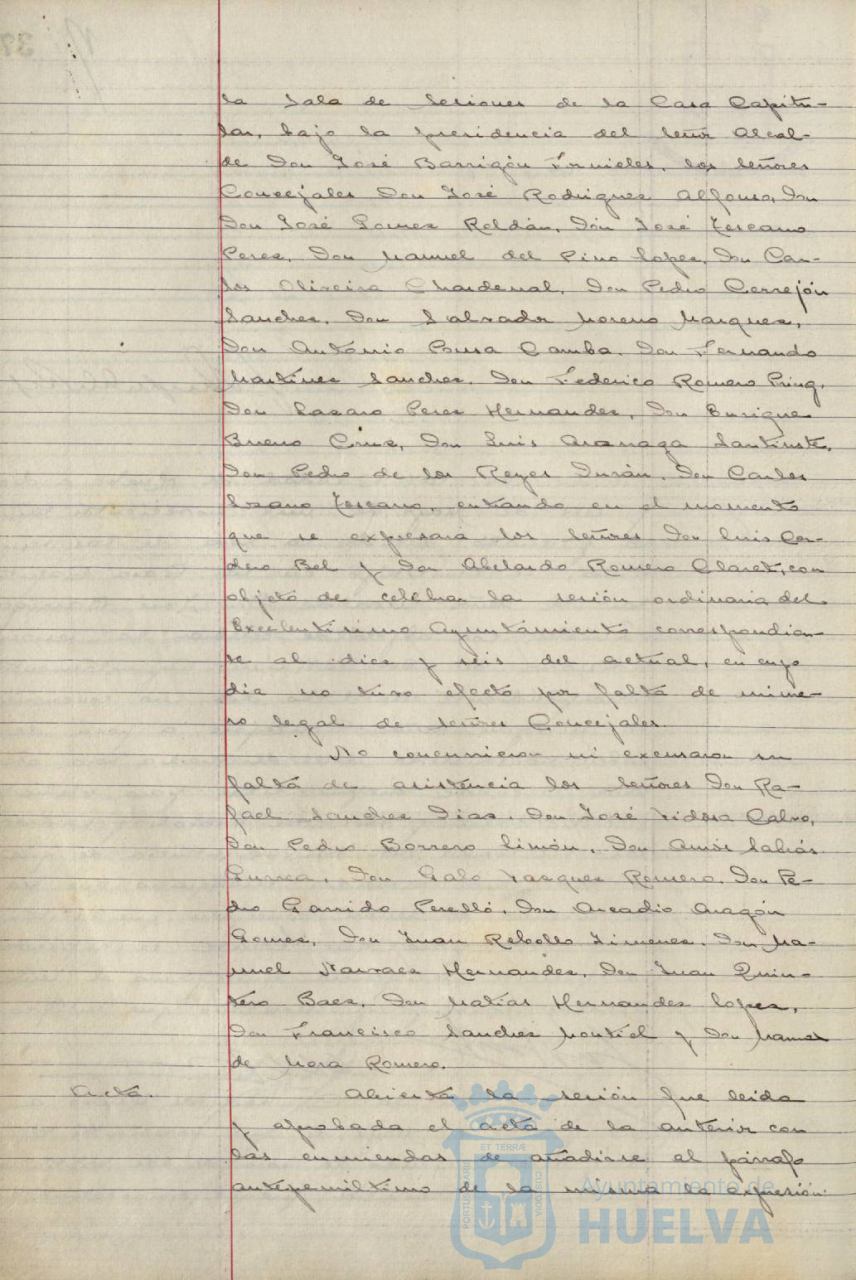 la Sala de Sesiones de la Casa Capitu-
lar, bajo la presidencia del Señor Alcal-
de Don José Barrigón Fornieles, los Señores
Concejales Don José Rodriguez Alfonso, Don
Don José Gomez Roldán, Don José Tescano
Perez, Don Manuel del Pino Lopez, Don Car-
los Oliveira Chardenal, Don Pedro Cerrejón
Sanchez, Don Salvador Moreno Marquez,
Don António Pousa Camba, Don Fernando
Martinez Sanchez, Don Federico Romero Pring,
Don Lazaro Perez Hernandez, Don Enrique
Bueno Cruz, Don Luis Aranaga Santiuste,
Don Pedro de los Reyes Durán, Don Carlos
Lozano Tescano, entrando en el momento
que se expresará los señores Don Luis Cor-
dero Bel y Don Abelardo Romero Claret, con
objeto de celebrar la sesión ordinaria del
Excelentisimo Ayuntamiento correspondien-
te al diez y seis del actual, en cuyo
dia no tuvo efecto por falta de núme-
ro legal de señores Concejales.
No concurrieron ni excusaron su
falta de asistencia los Señores Don Ra-
fael Sanchez Diaz, Don José Vidosa Calvo,
Don Pedro Borrero Limón, Don Amós Sabrás
Gurrea, Don Galo Vazquez Romero, Don Pe-
dro Garrido Perelló, Don Arcadio Aragón
Gomez, Don Juan Rebollo Jimenez, Don Ma-
nuel Narvaez Hernandez, Don Juan Quin-
tero Baez, Don Matías Hernandez Lopez,
Don Francisco Sanchez Montiel y Don Manuel
de Mora Romero.
Acta. Abierta la sesión fue leida
y aprobada el acta de la anterior con
las enmiendas de añadirse al párrafo
antepenúltimo de la misma la expresión:
PORTUS MARIS ET TERRÆ CUSTODIA
Ayuntamiento de
HUELVA